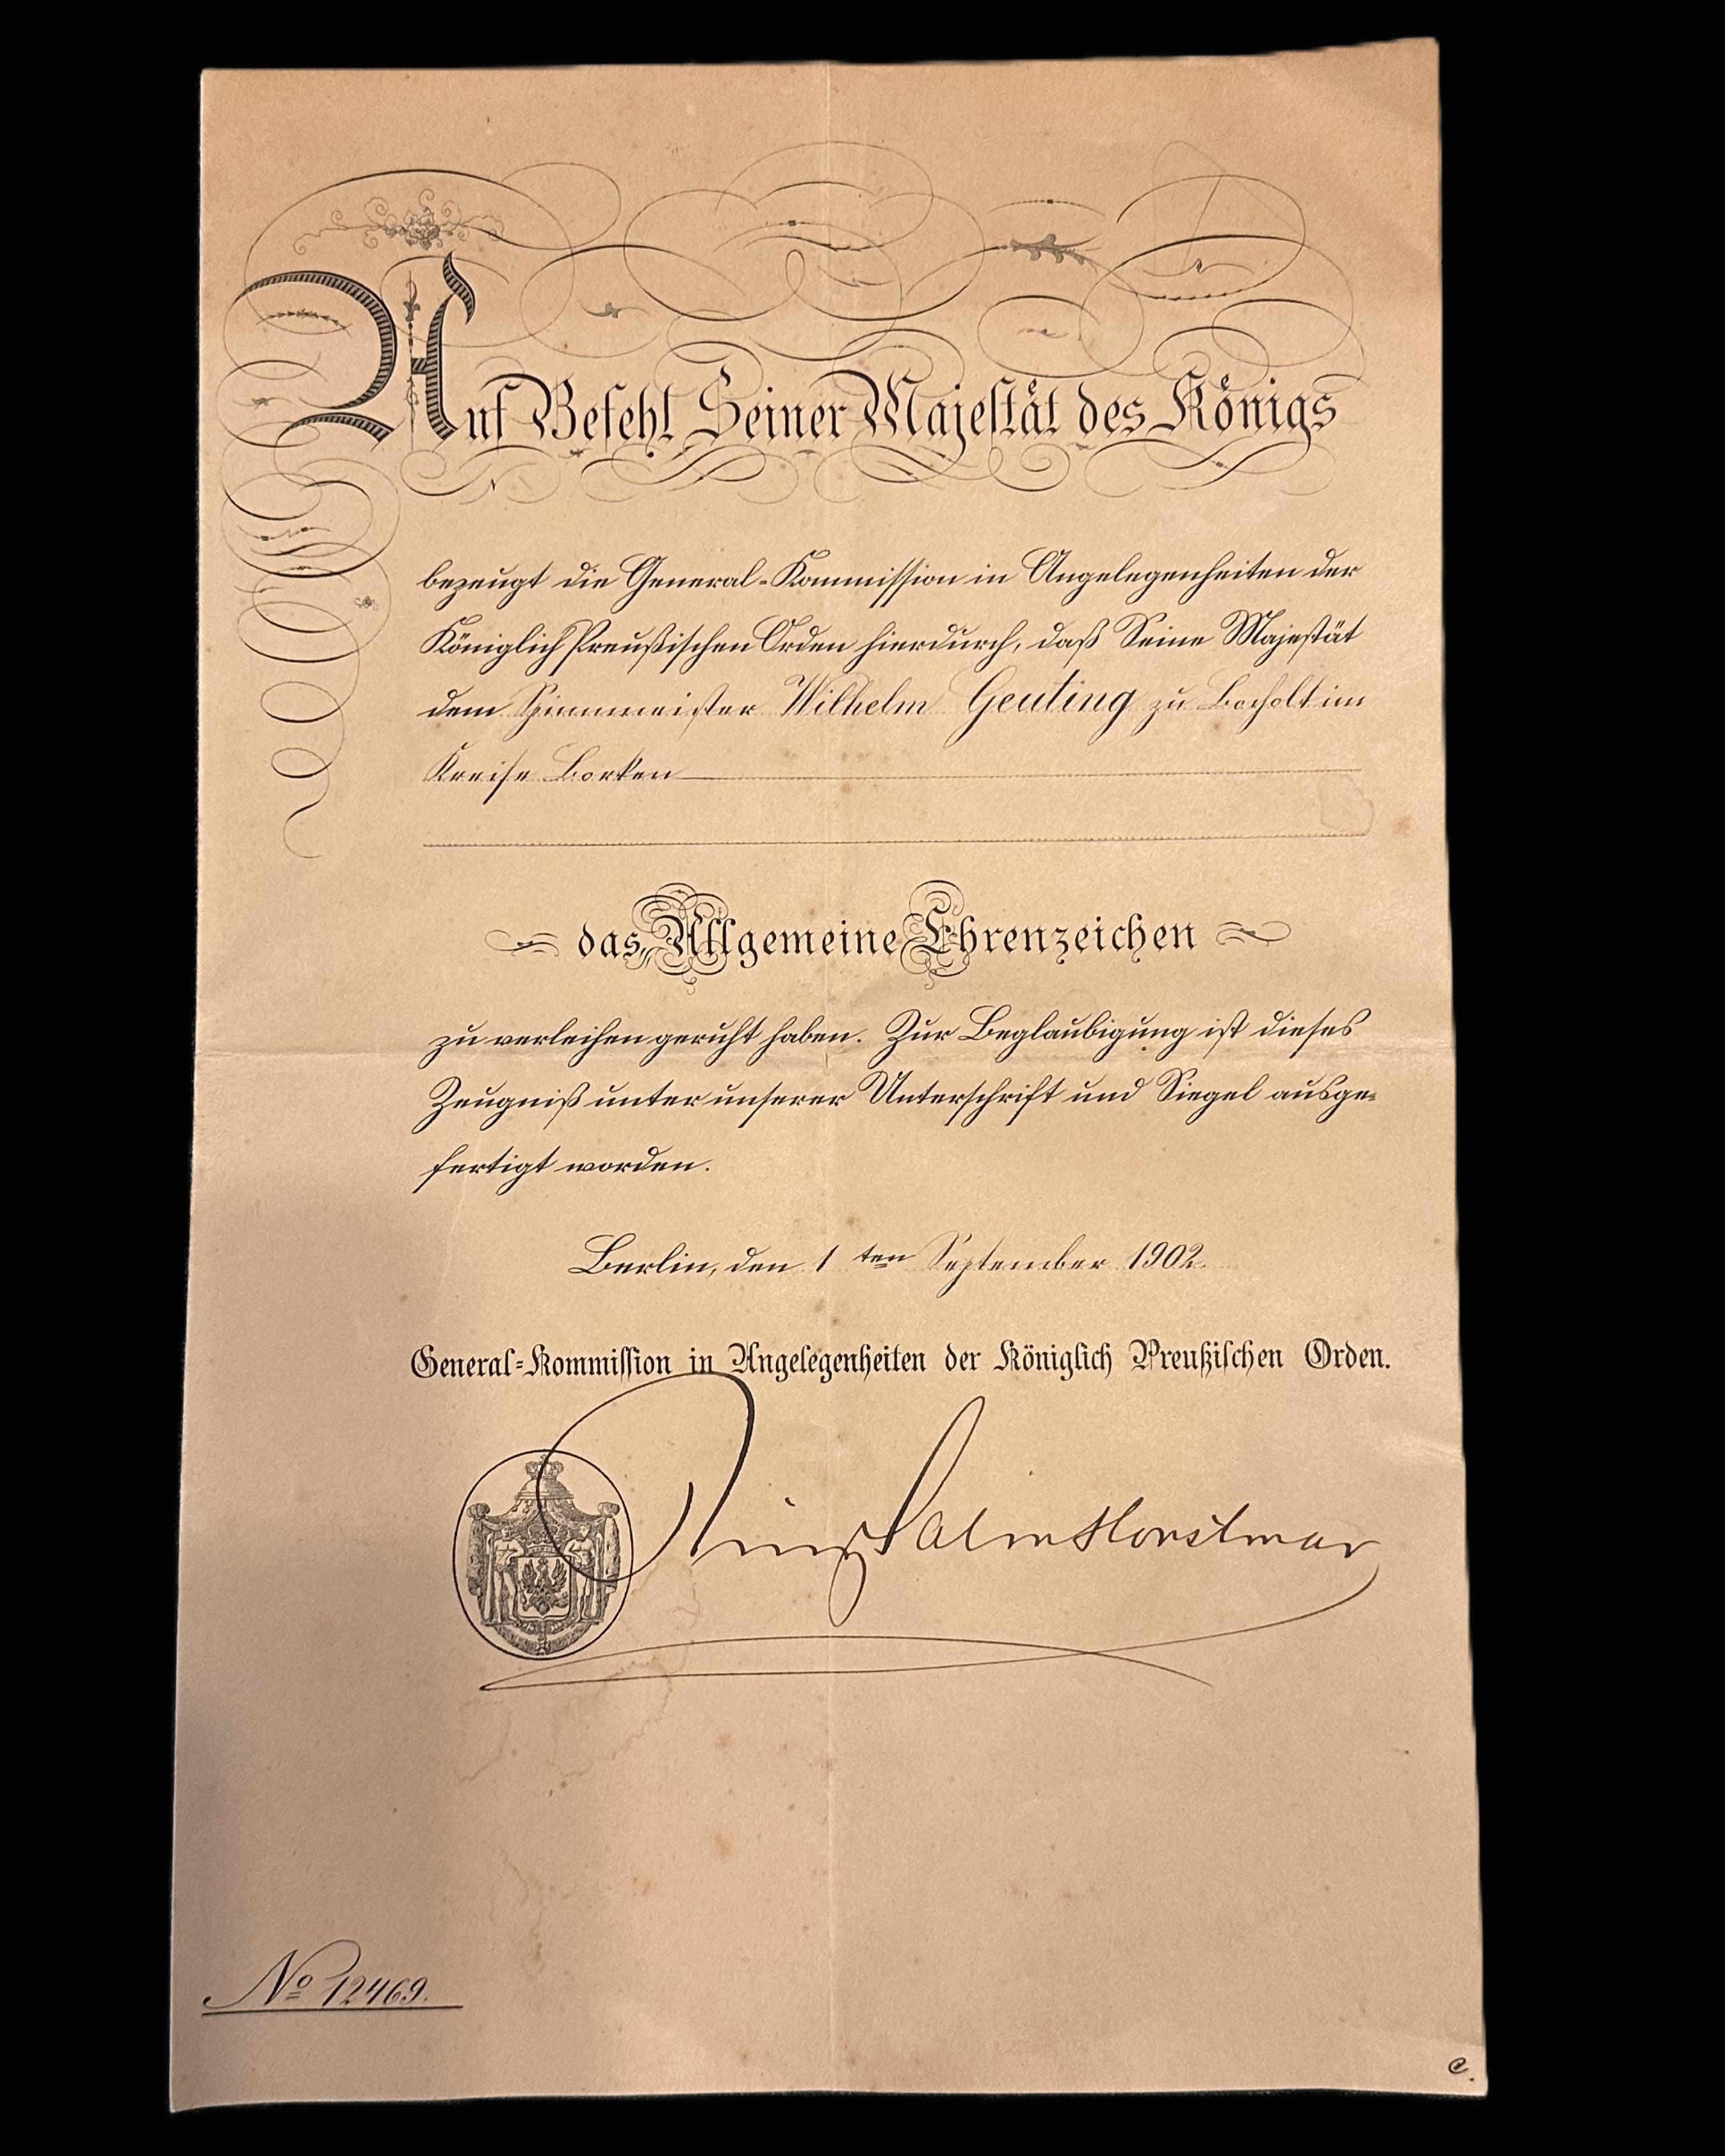 Auf Befehl Seiner Majestät des Königs
bezeugt die General-Kommission in Angelegenheiten der
Königlich Preußischen Orden hierdurch, daß Seine Majestät
dem Spinnmeister Wilhelm Geuting zu Bocholt im
Kreise Borken
das Allgemeine Ehrenzeichen
zu verleihen geruht haben. Zur Beglaubigung ist dieses
Zeugniß unter unserer Unterschrift und Siegel ausge-
fertigt worden.
Berlin, den 1ten September 1902.
General-Kommission in Angelegenheiten der Königlich Preußischen Orden.
Prinz Salm Horstmar
No 12469.
C.